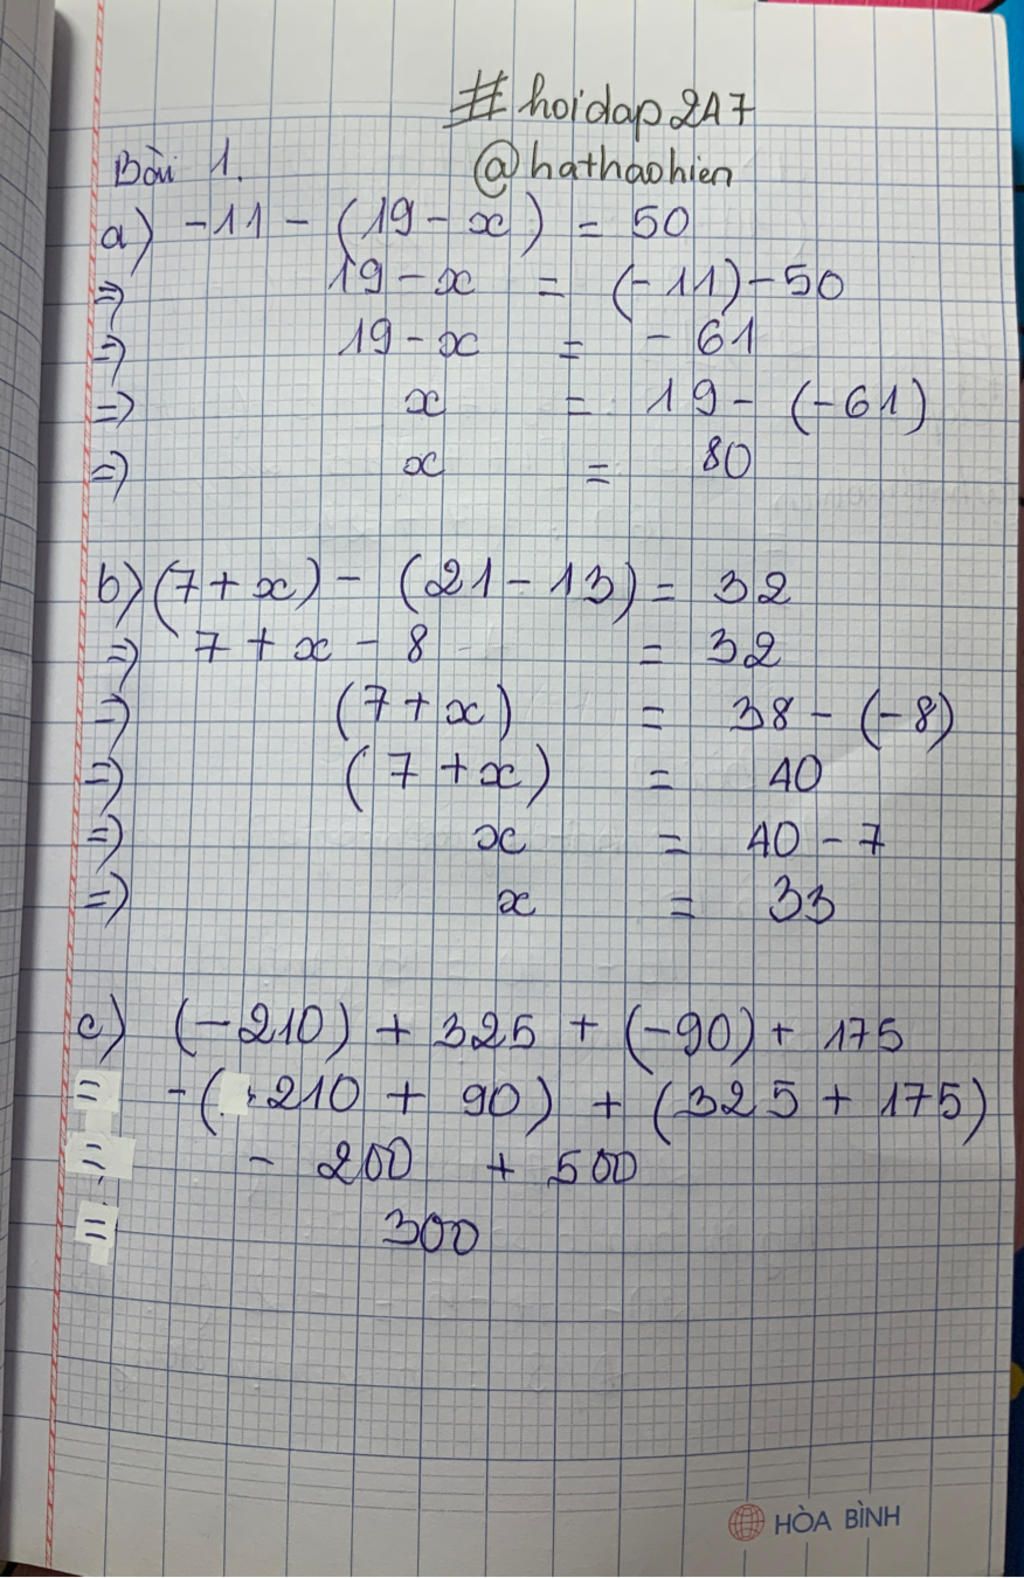 #hoidap247
@hathaohien
Bài 1.
a) -11 - (19 - x) = 50
=> 19 - x = (-11) - 50
=> 19 - x = - 61
=> x = 19 - (-61)
=> x = 80
b) (7 + x) - (21 - 13) = 32
=> 7 + x - 8 = 32
=> (7 + x) = 38 - (-8)
=> (7 + x) = 40
=> x = 40 - 7
=> x = 33
c) (-210) + 325 + (-90) + 175
= -(210 + 90) + (325 + 175)
= - 200 + 500
= 300
HÒA BÌNH